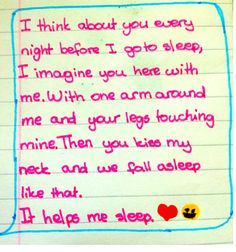 I think about you every
night before I go to sleep,
I imagine you here with
me. With one arm around
me and your legs touching
mine. Then you kiss my
neck and we fall asleep
like that.
It helps me sleep.